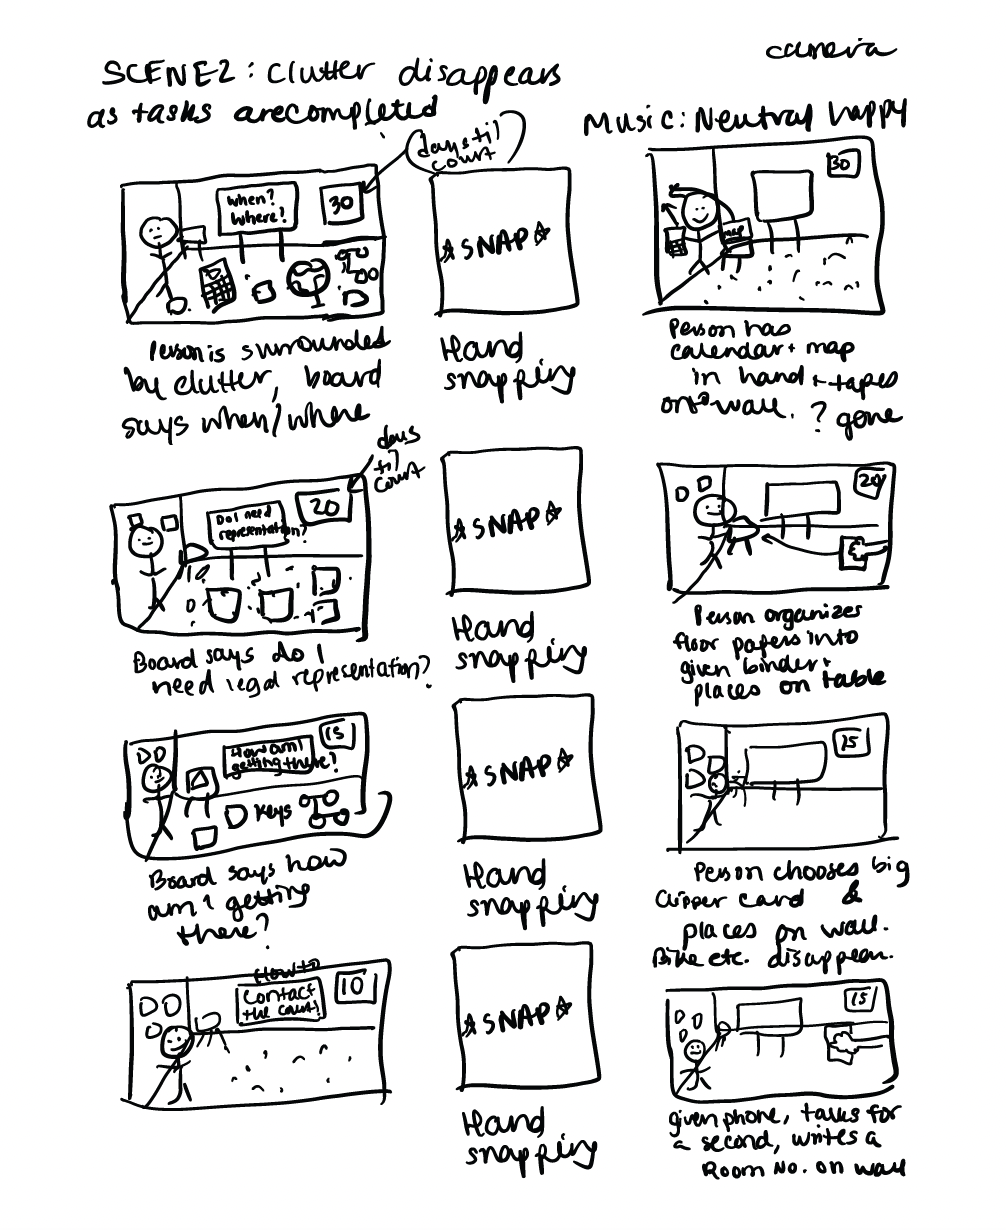 camera
SCENE2: Clutter disappears
as tasks are completed
Music: Neutral happy
days til
court
when?
where?
30
☆SNAP☆
30
map
Person is surrounded
by clutter, board
says when/where
Hand
snapping
Person has
calendar + map
in hand + tapes
onto wall. ? gone
days
til
court
Do I need
representation?
20
☆SNAP☆
20
Board says do I
need legal representation?
Hand
snapping
Person organizes
floor papers into
given binder +
places on table
How am I
getting there?
15
Keys
☆SNAP☆
15
Board says how
am I getting
there?
Hand
snapping
Person chooses big
Clipper card &
places on wall.
Bike etc. disappear.
How to
Contact
the court?
10
☆SNAP☆
15
Hand
snapping
given phone, talks for
a second, writes a
Room No. on wall